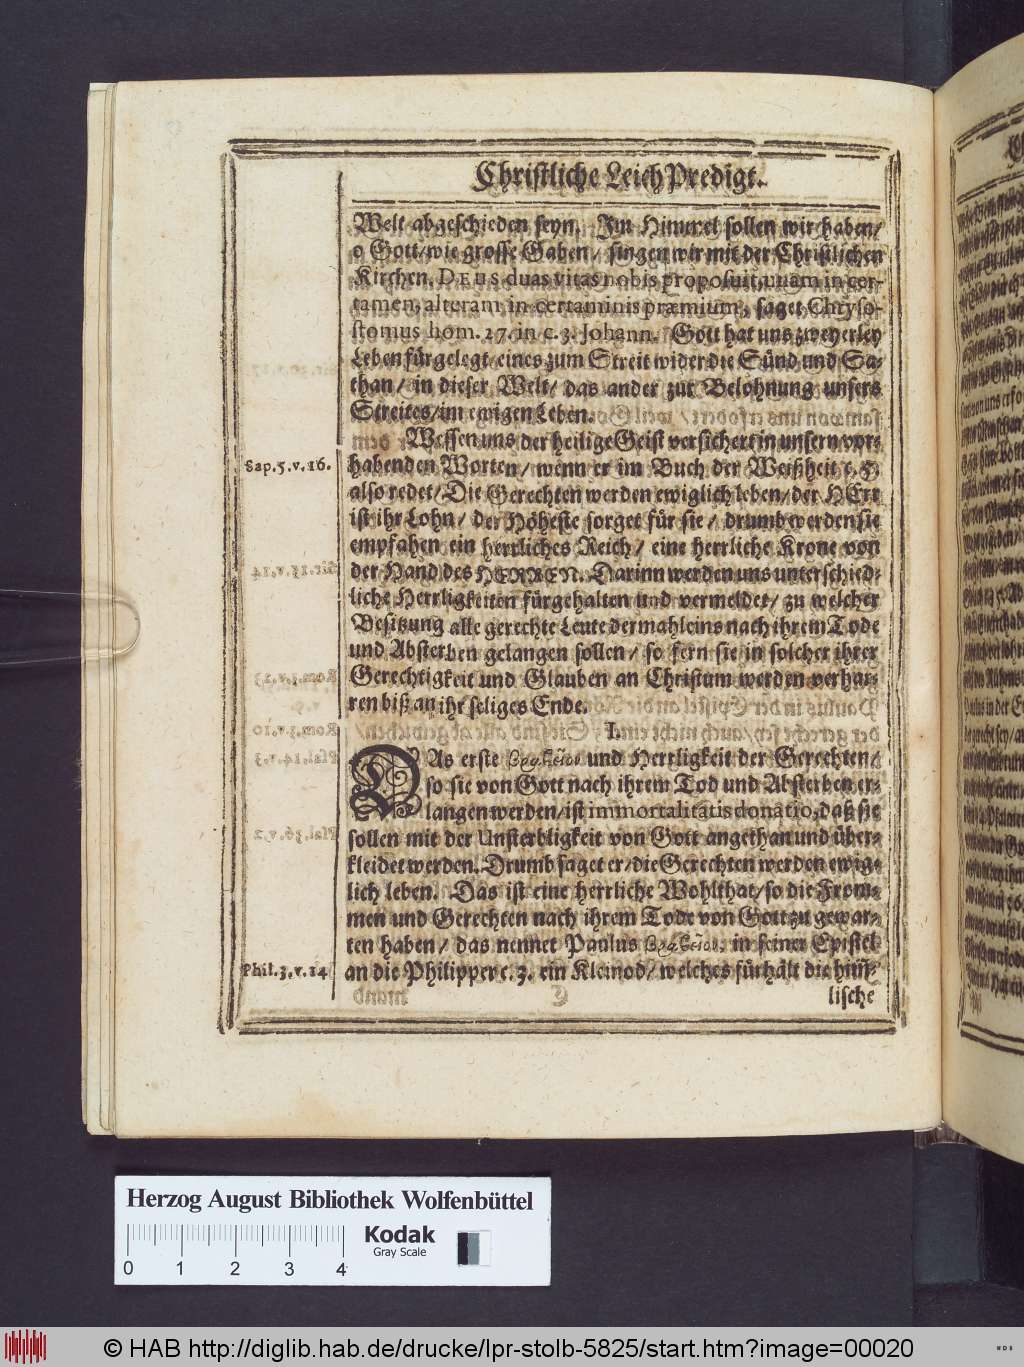 Christliche LeichPredigt.
Welt abgeschieden seyn. Im Himmel sollen wir haben/
o Gott/wie grosse Gaben/ singen wir mit der Christlichen
Kirchen. DEUS duas vitas nobis proposuit, unam in cer-
tamen, alteram in certaminis præmium, saget Chryso-
stomus hom. 27. in c. 3. Johann. Gott hat uns zweyerley
Leben fürgelegt/eines zum Streit wider die Sünd und Sa-
than/ in dieser Welt/ das ander zur Belohnung unsers
Streites/im ewigen Leben.
Wessen uns der heilige Geist versichert in unsern vor-
Sap. 5. v. 16.
habenden Worten/ wenn er im Buch der Weißheit c. 5.
also redet/ Die Gerechten werden ewiglich leben/der HErr
ist ihr Lohn/ der Höheste sorget für sie/ drumb werden sie
empfahen ein herrliches Reich/ eine herrliche Krone von
der Hand des HERREN. Darinn werden uns unterschied-
liche Herrligkeiten fürgehalten und vermeldet/ zu welcher
Besitzung alle gerechte Leute dermahleins nach ihrem Tode
und Absterben gelangen sollen/ so fern sie in solcher ihrer
Gerechtigkeit und Glauben an Christum werden verhar-
ren biß an ihr seliges Ende.
I.
DAs erste βραβεῖον und Herrligkeit der Gerechten/
so sie von Gott nach ihrem Tod und Absterben er-
langen werden/ist immortalitatis donatio, daß sie
sollen mit der Unsterbligkeit von Gott angethan und über-
kleidet werden. Drumb saget er/die Gerechten werden ewig-
lich leben. Das ist eine herrliche Wohlthat/so die From-
men und Gerechten nach ihrem Tode von Gott zu gewar-
ten haben/ das nennet Paulus βραβεῖον, in seiner Epistel
Phil. 3. v. 14
an die Philipper c. 3. ein Kleinod/welches fürhält die him̃-
lische
Herzog August Bibliothek Wolfenbüttel
Kodak
Gray Scale
0 1 2 3 4
© HAB http://diglib.hab.de/drucke/lpr-stolb-5825/start.htm?image=00020